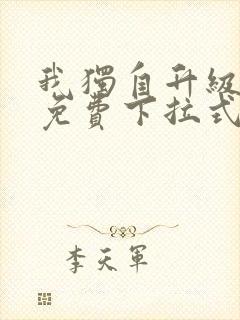 我獨自升級
免費下拉式
李天軍